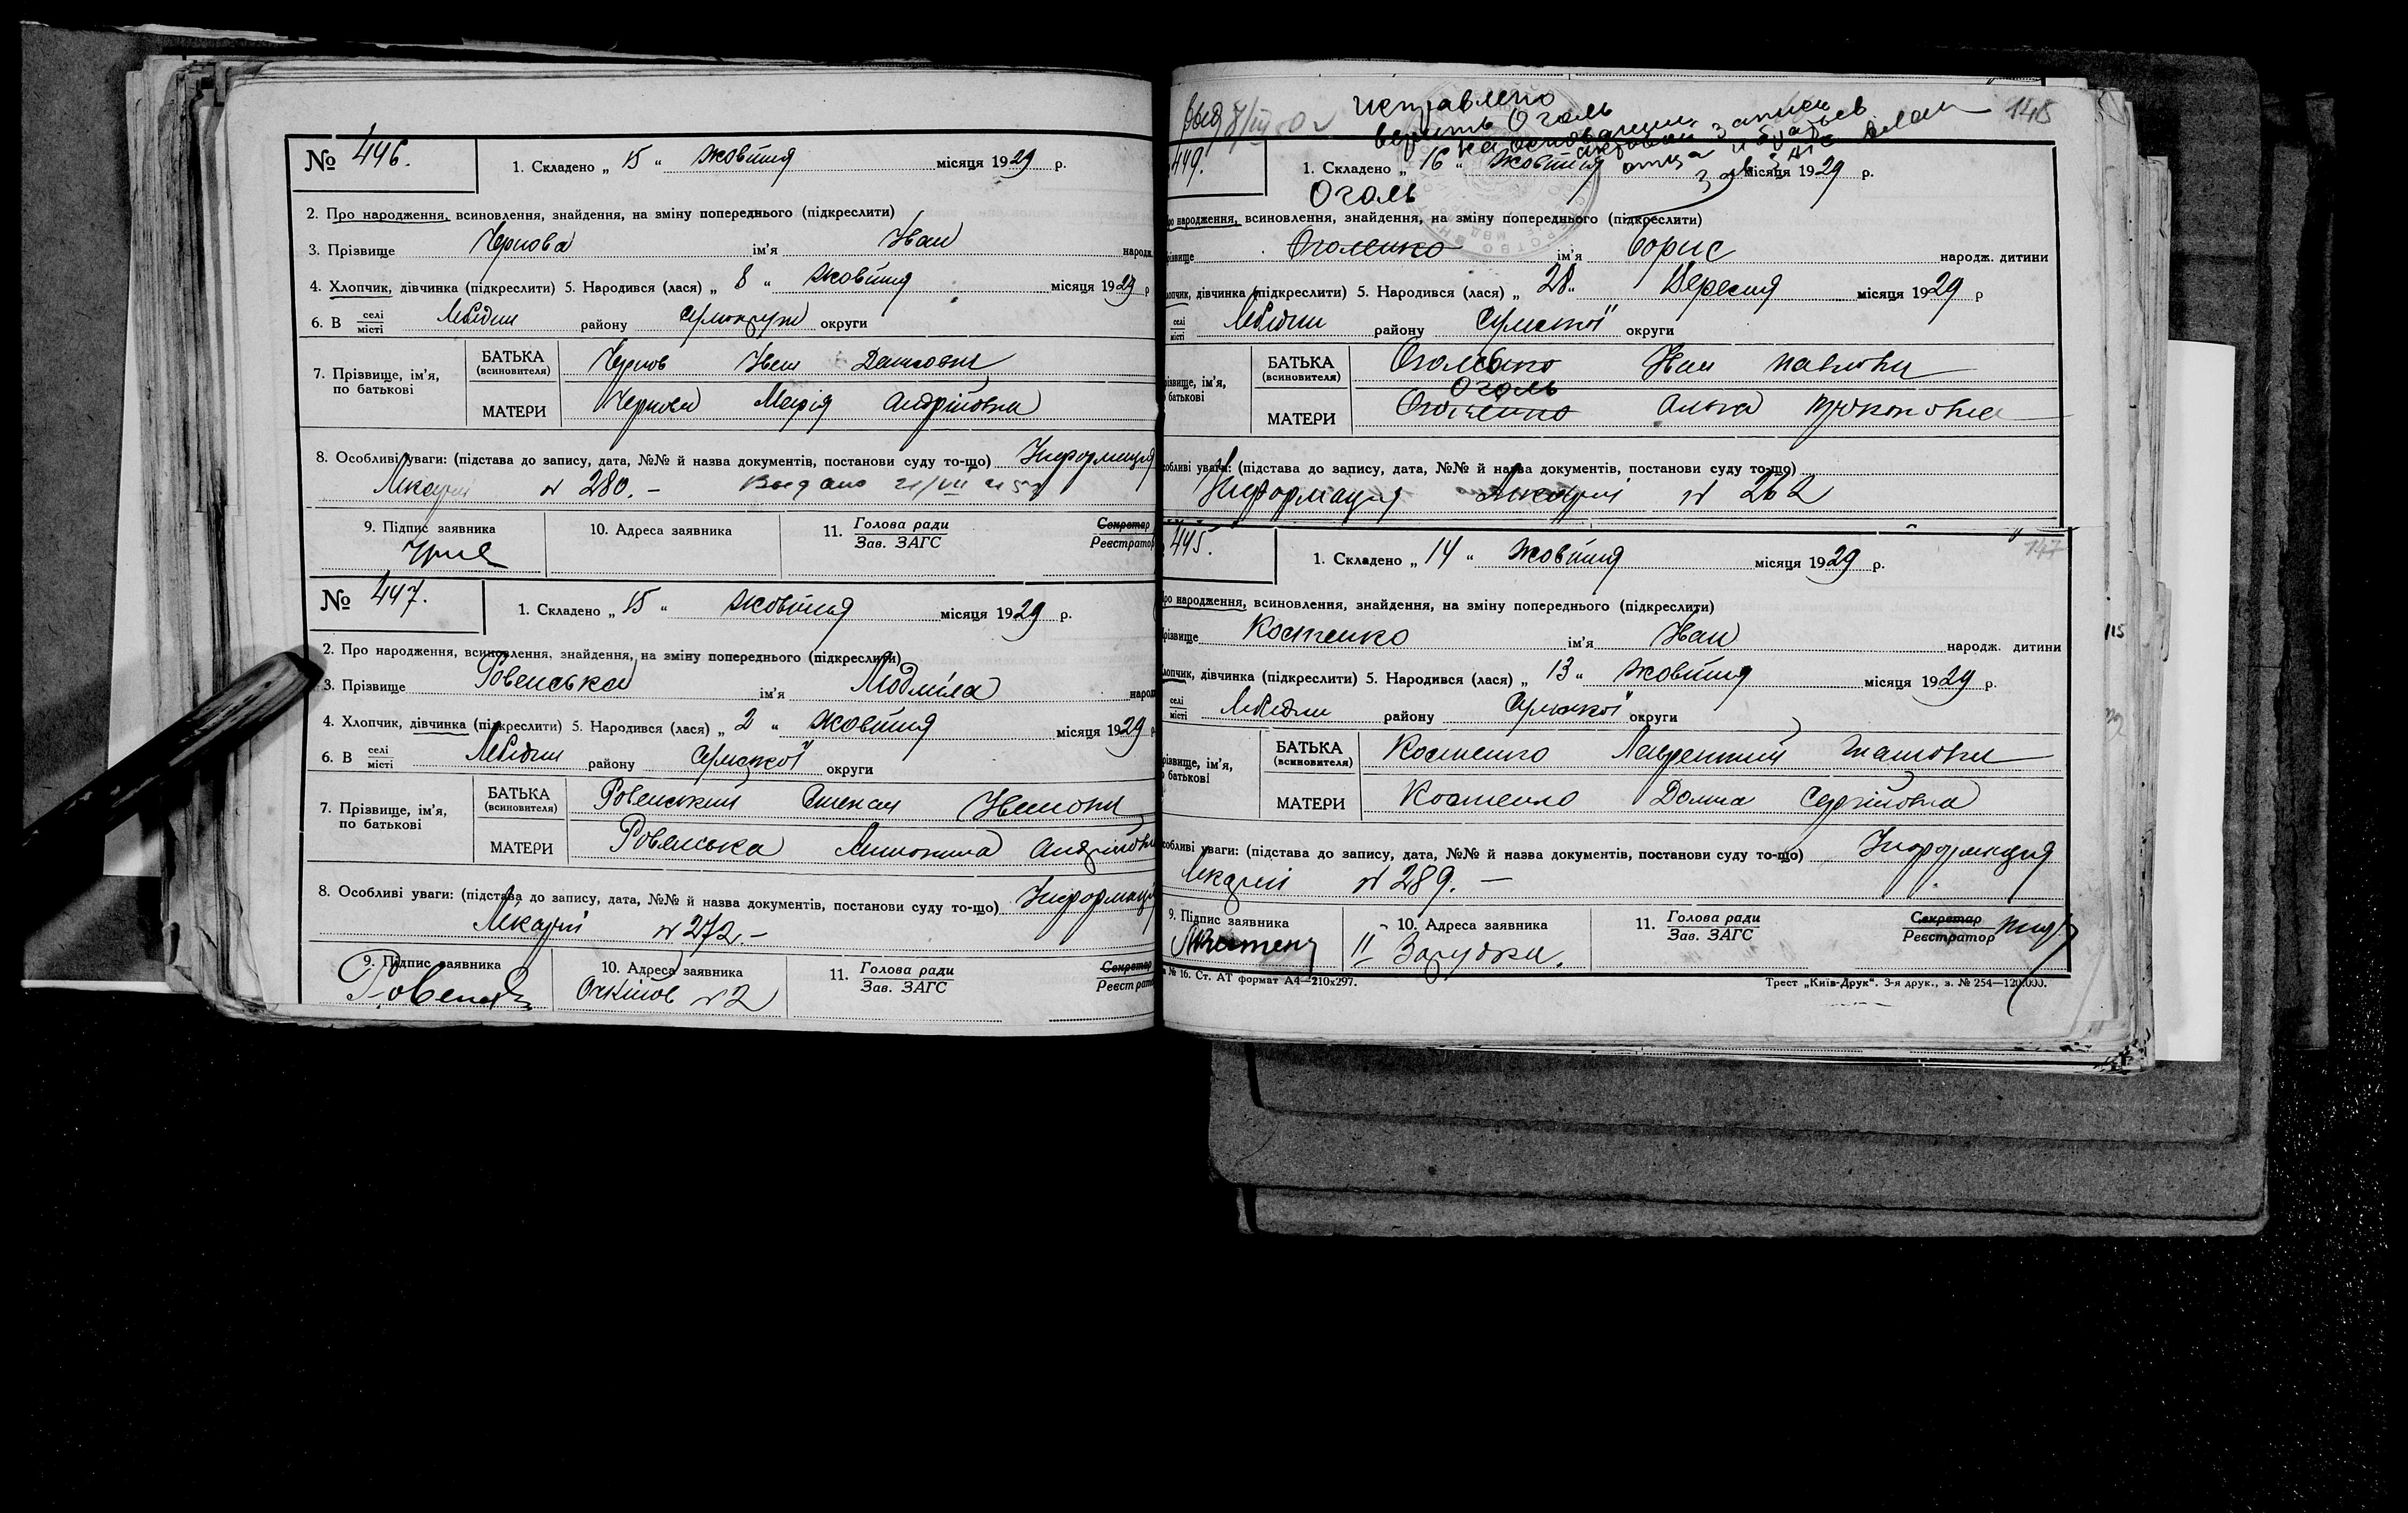 № 446.
1. Складено „ 15 “ Жовтня місяця 1929 р.
2. Про народження, всиновлення, знайдення, на зміну попереднього (підкреслити)
3. Прізвище Чернова ім'я Іван народж.
4. Хлопчик, дівчинка (підкреслити) 5. Народився (лася) „ 8 “ Жовтня місяця 1929 р
6. В селі місті Лебедин району округи
7. Прізвище, ім'я, по батькові
БАТЬКА (всиновителя) Чернов Іван
МАТЕРИ Чернова Марія Андріївна
8. Особливі уваги: (підстава до запису, дата, №№ й назва документів, постанови суду то-що) Інформация
Лікарні № 280. –
9. Підпис заявника
10. Адреса заявника
11. Голова ради Зав. ЗАГС
Секретар Реєстратор
№ 447.
1. Складено „ 15 “ Жовтня місяця 1929 р.
2. Про народження, всиновлення, знайдення, на зміну попереднього (підкреслити)
3. Прізвище Ровенська ім'я Людмила народ
4. Хлопчик, дівчинка (підкреслити) 5. Народився (лася) „ 2 “ Жовтня місяця 1929 р
6. В селі місті Лебедин району Сумської округи
7. Прізвище, ім'я, по батькові
БАТЬКА (всиновителя) Ровенський Степан Іванович
МАТЕРИ Ровенська Андріївна
8. Особливі уваги: (підстава до запису, дата, №№ й назва документів, постанови суду то-що) Інформаці
Лікарні № 272. –
9. Підпис заявника
10. Адреса заявника
№ 2
11. Голова ради Зав. ЗАГС
Секретар Реєстрато
исправлено 148
верить Оголь
на основании записи
449.
1. Складено „ 16 “ Жовтня місяця 1929 р.
Оголь
ро народження, всиновлення, знайдення, на зміну попереднього (підкреслити)
різвище Оголенко ім'я Борис народж. дитини
лопчик, дівчинка (підкреслити) 5. Народився (лася) „ 28 “ Вересня місяця 1929 р
селі місті Лебедин району Сумської округи
різвище, ім'я, батькові
БАТЬКА (всиновителя) Оголенко Іван Павлович
Оголь
МАТЕРИ Оголенко
собливі уваги: (підстава до запису, дата, №№ й назва документів, постанови суду то-що)
Інформация Лікарні № 262
445.
147
1. Складено „ 14 “ Жовтня місяця 1929 р.
ро народження, всиновлення, знайдення, на зміну попереднього (підкреслити)
різвище Костенко ім'я Іван народж. дитини
лопчик, дівчинка (підкреслити) 5. Народився (лася) „ 13 “ Жовтня місяця 1929 р.
селі місті Лебедин району Сумської округи
різвище, ім'я, батькові
БАТЬКА (всиновителя) Костенко Лаврентий
МАТЕРИ Костенко Домна Сергіївна
собливі уваги: (підстава до запису, дата, №№ й назва документів, постанови суду то-що) Інформация
Лікарні № 289. –
9. Підпис заявника
10. Адреса заявника
11. Голова ради Зав. ЗАГС
Секретар Реєстратор
№ 16. Ст. АТ формат А4—210х297.
Трест „Київ-Друк“. 3-я друк., з. № 254—120.000.